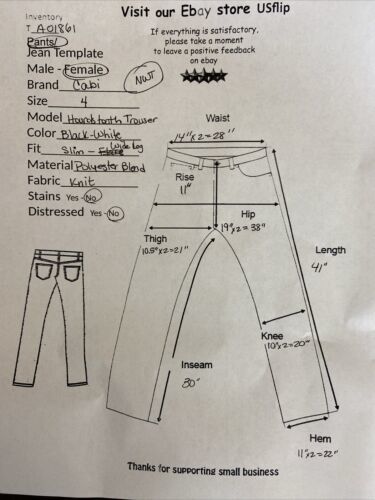 Visit our Ebay store USflip
Inventory
T A01861
Pants/
Jean Template
Male - Female
Brand Cabi
NWT
Size 4
Model Houndstooth Trouser
Color Black-White
Fit Slim - Wide Leg
Material Polyester Blend
Fabric Knit
Stains Yes - No
Distressed Yes - No
If everything is satisfactory,
please take a moment
to leave a positive feedback
on ebay
Waist
14"x2=28"
Rise
11"
Hip
19"x2=38"
Thigh
10.5"x2=21"
Length
41"
Knee
10"x2=20"
Inseam
30"
Hem
11"x2=22"
Thanks for supporting small business